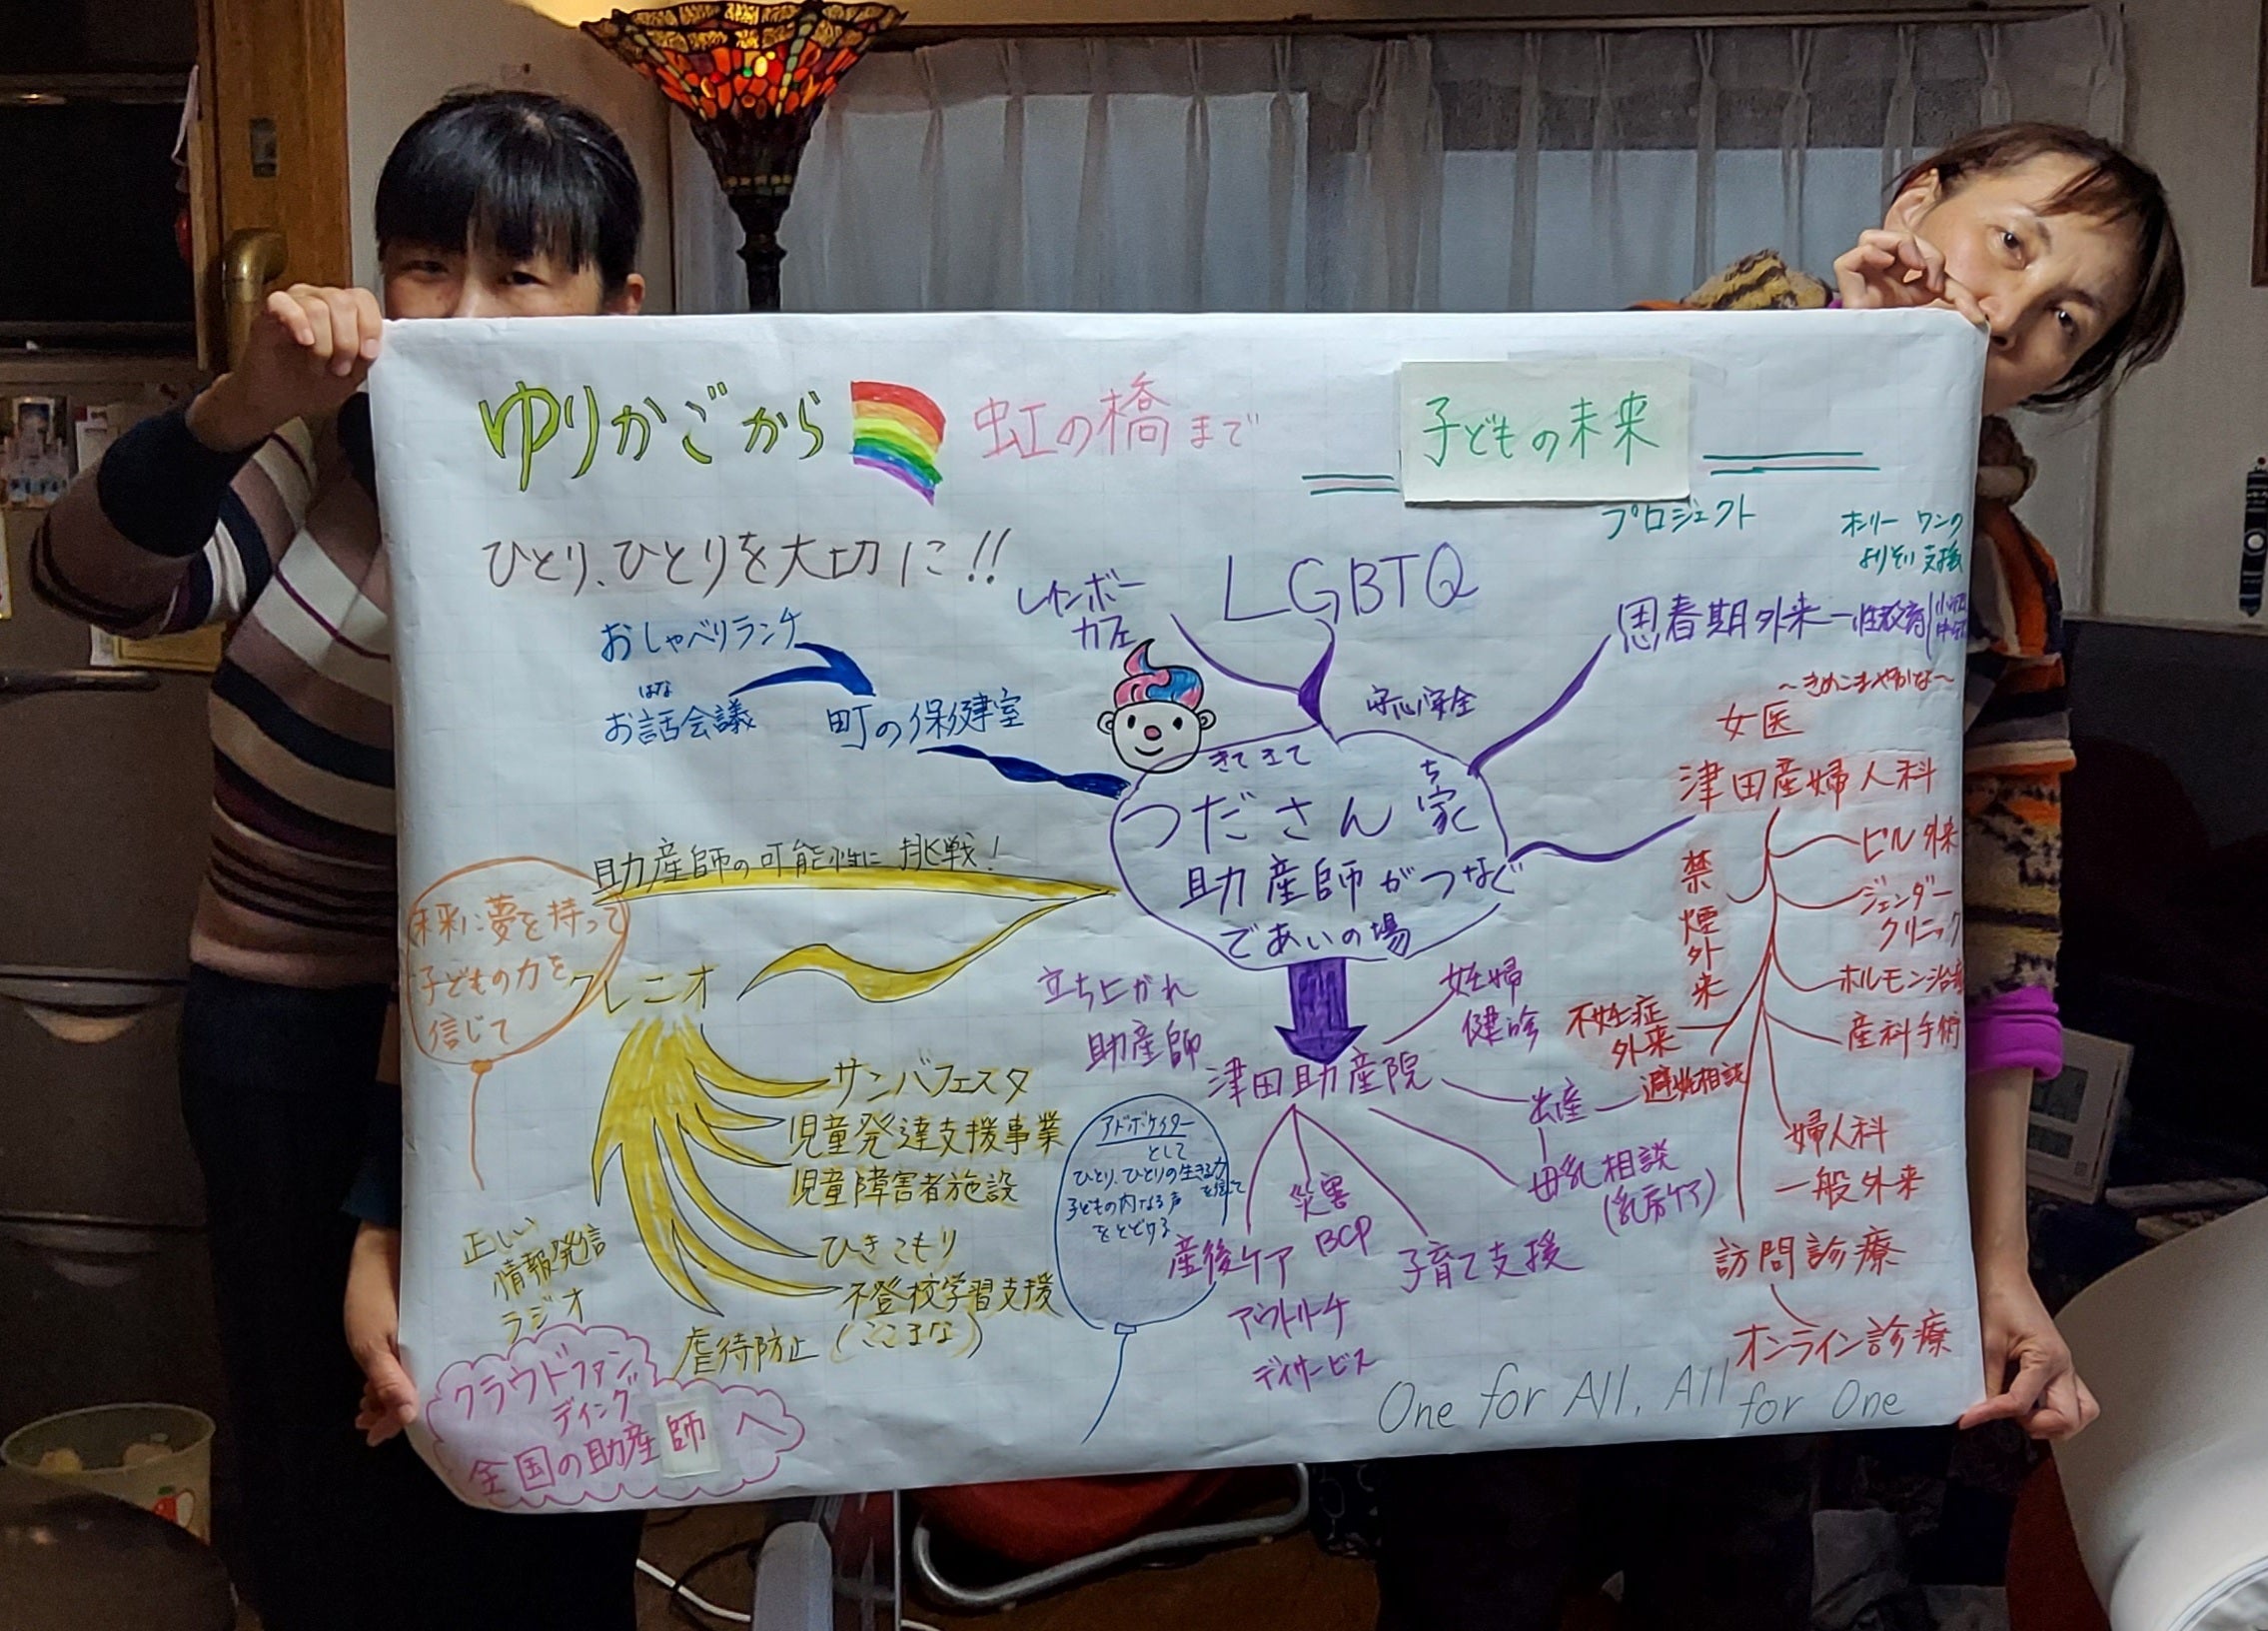 ゆりかごから 虹の橋まで
子どもの未来
プロジェクト
オンリーワンの
よりそい支援
ひとり、ひとりを大切に!!
レインボー
カフェ
LGBTQ
思春期外来ー性教育
おしゃべりランチ
はな
お話会議
町の保健室
安心安全
~きめこまやかな~
女医
津田産婦人科
ピル外来
ジェンダー
クリニック
ホルモン治療
産科手術
禁煙外来
不妊症
外来
避妊相談
婦人科
一般外来
訪問診療
オンライン診療
きてきて
ち
つださん家
助産師がつなぐ
であいの場
助産師の可能性に挑戦!
未来に夢を持って
子どもの力を
信じて
クレニオ
サンバフェスタ
児童発達支援事業
児童障害者施設
ひきこもり
不登校学習支援
(ここまな)
虐待防止
正しい
情報発信
ラジオ
クラウドファン
ディング
全国の助産師へ
立ち上がれ
助産師
津田助産院
妊婦
健診
出産
母乳相談
(乳房ケア)
子育て支援
災害
BCP
産後ケア
アウトリーチ
デイサービス
アドボケイター
として
ひとり、ひとりの生きる力
を信じて
子どもの内なる声
をとどける
One for All, All for One